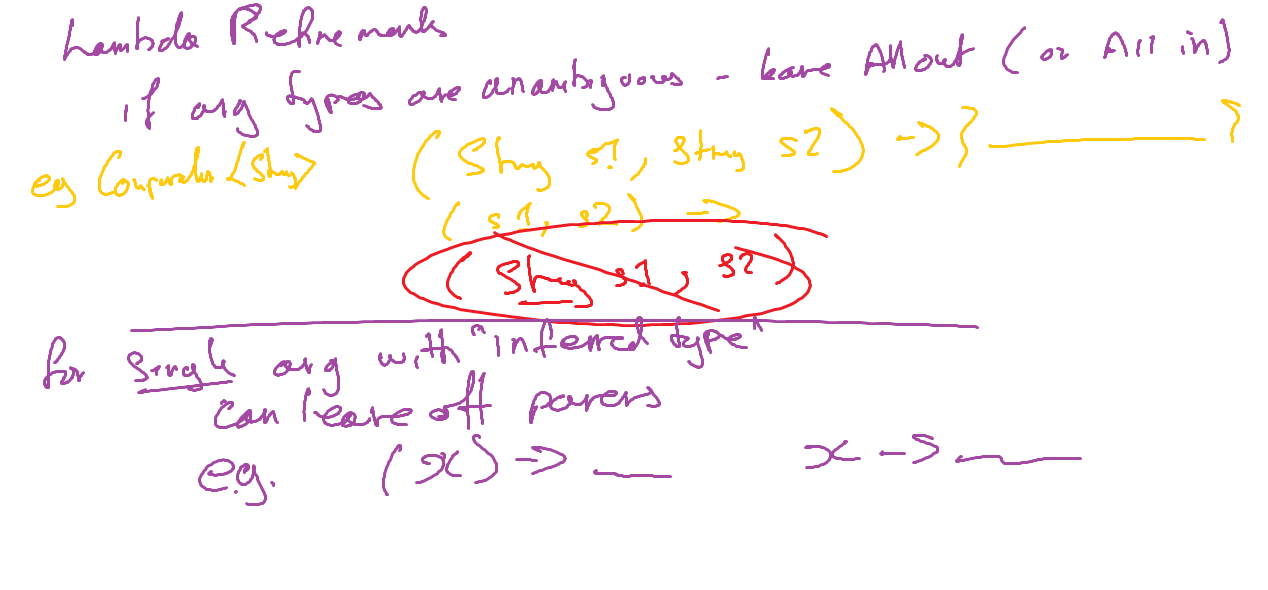 Lambda Refinements
if arg types are unambiguous - leave All out ( or All in )
eg Comparator <String> ( String s1, String s2 ) -> { }
( s1, s2 ) ->
( String s1, s2 )
for single arg with "inferred type"
can leave off parens
e.g. (x) -> __ x -> __